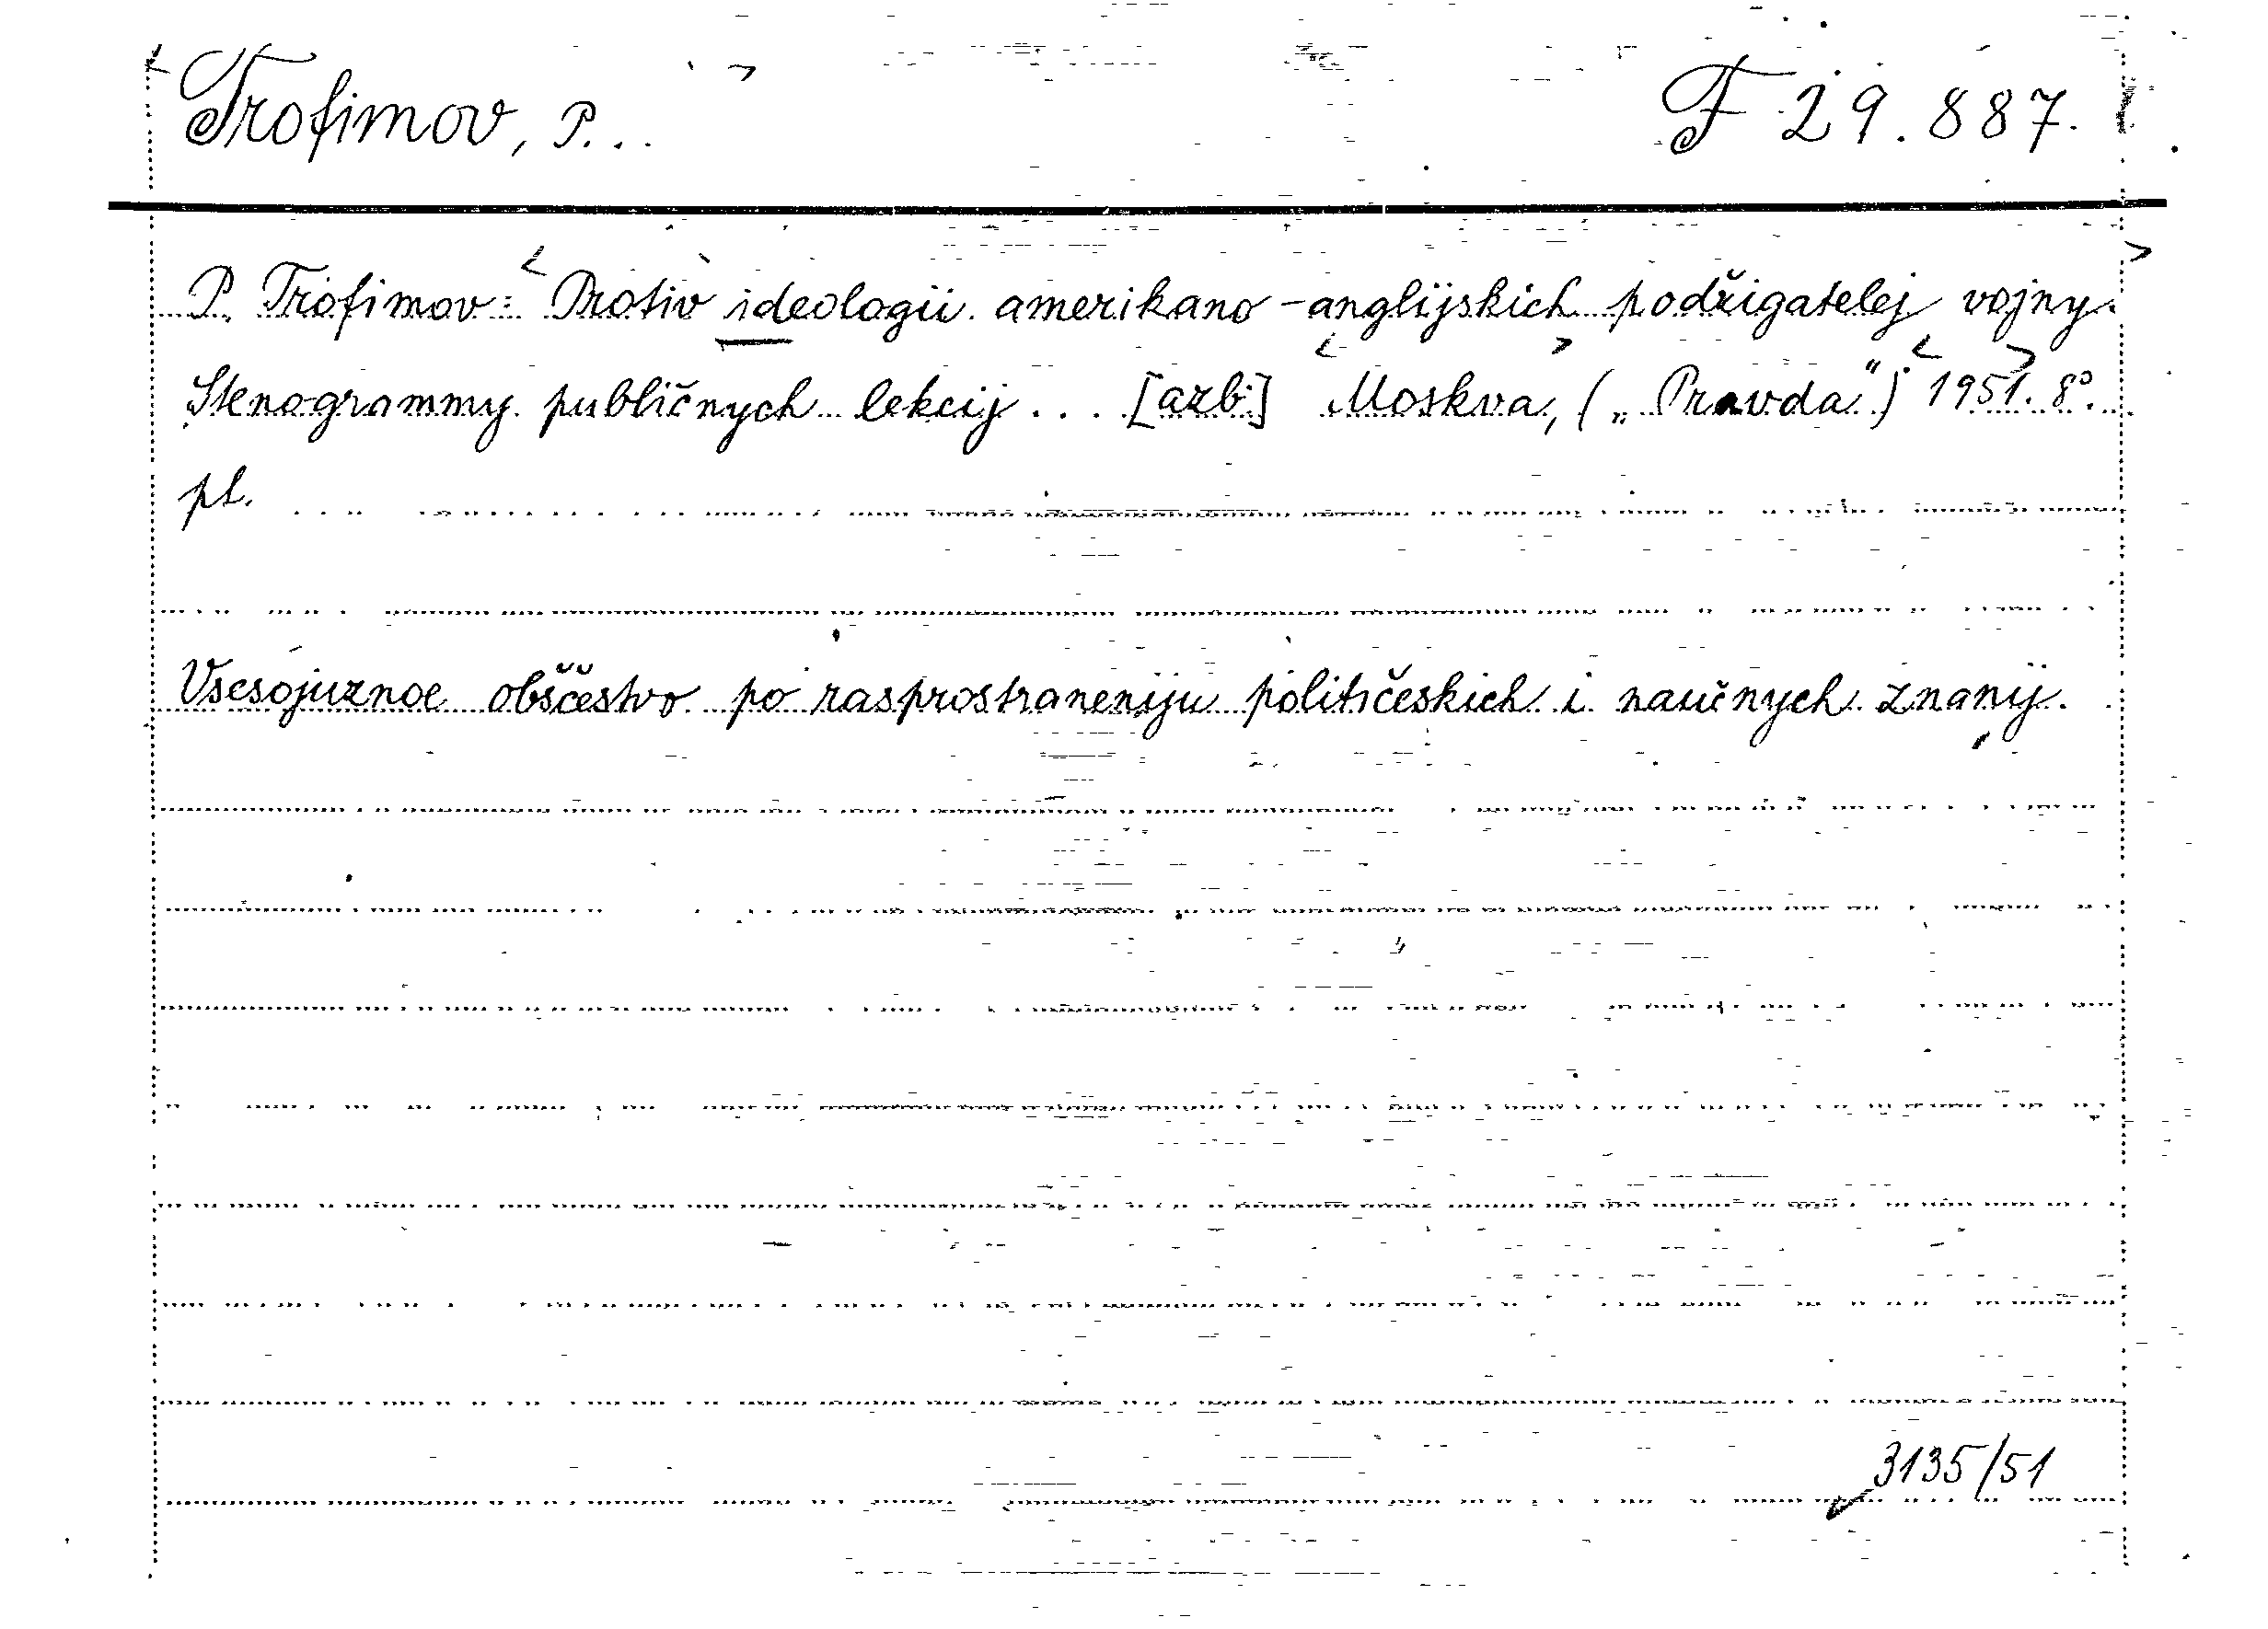 Trofimov, P...
F 29.887.
P. Trofimov: Protiv ideologii amerikano-anglijskich podžigatelej vojny.
Stenogrammy publičnych lekcij... [azb.] Moskva, („Pravda“) 1951. 8°.
pl.
Vsesojuznoe obščestvo po rasprostraneniju političeskich i naučnych znanij.
3135/51